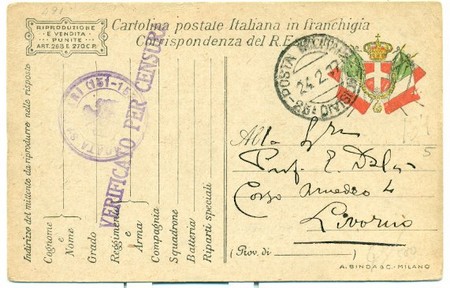 291
RIPRODUZIONE
E VENDITA
PUNITE
ART. 265 E 270 C.P.
Cartolina postale Italiana in franchigia
Corrispondenza del R. E
VERIFICATO PER CENSURA
POSTA MILITARE
24.2.17
Indirizzo del mittente da riprodurre nelle risposte
Cognome
e
Nome
Grado
Reggimento
e
Arma
Compagnia
Squadrone
Batteria
Riparti speciali
Prof. E.
Corso Amedeo 4
Livorno
(Prov. di )
5
A. BINDA & C. - MILANO